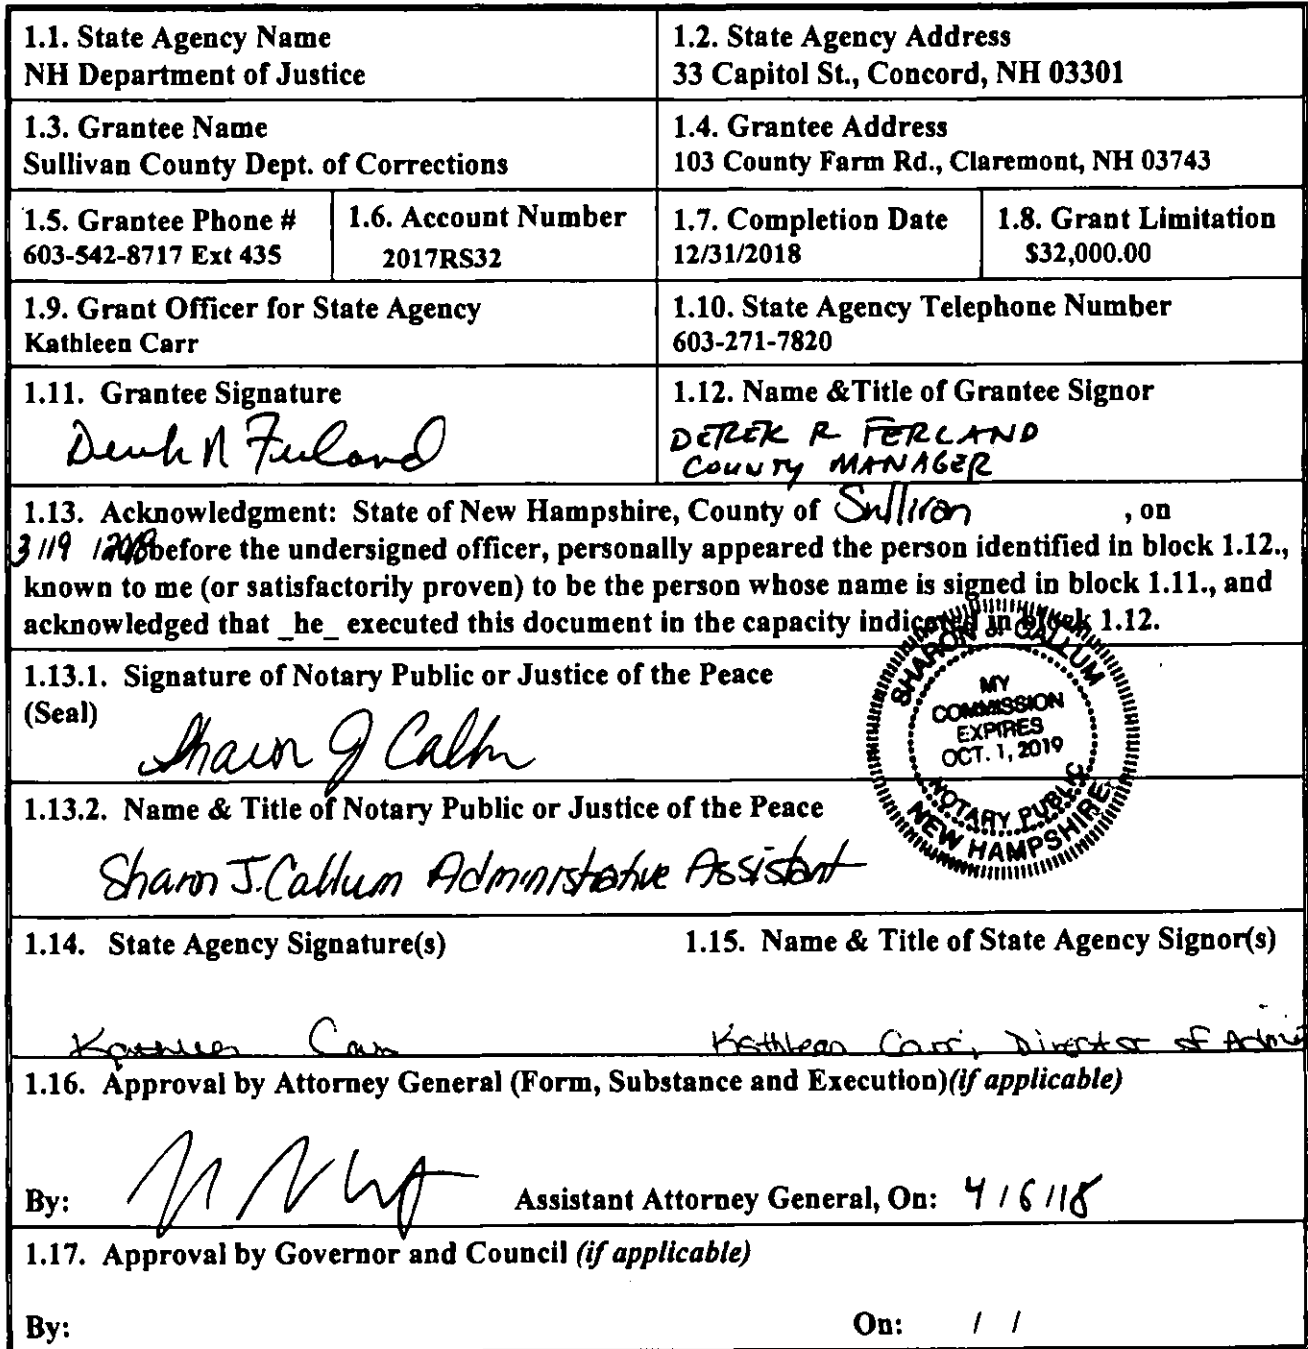 1.1. State Agency Name
NH Department of Justice
1.2. State Agency Address
33 Capitol St., Concord, NH 03301
1.3. Grantee Name
Sullivan County Dept. of Corrections
1.4. Grantee Address
103 County Farm Rd., Claremont, NH 03743
1.5. Grantee Phone #
603-542-8717 Ext 435
1.6. Account Number
2017RS32
1.7. Completion Date
12/31/2018
1.8. Grant Limitation
$32,000.00
1.9. Grant Officer for State Agency
Kathleen Carr
1.10. State Agency Telephone Number
603-271-7820
1.11. Grantee Signature
1.12. Name &Title of Grantee Signor
DEREK R FERLAND
COUNTY MANAGER
1.13. Acknowledgment: State of New Hampshire, County of Sullivan , on
3/19/2018 before the undersigned officer, personally appeared the person identified in block 1.12.,
known to me (or satisfactorily proven) to be the person whose name is signed in block 1.11., and
acknowledged that _he_ executed this document in the capacity indicated in block 1.12.
1.13.1. Signature of Notary Public or Justice of the Peace
(Seal)
Sharon J Callum
SHARON J. CALLUM
MY
COMMISSION
EXPIRES
OCT. 1, 2019
NOTARY PUBLIC
NEW HAMPSHIRE
1.13.2. Name & Title of Notary Public or Justice of the Peace
Sharon J. Callum Administrative Assistant
1.14. State Agency Signature(s)
1.15. Name & Title of State Agency Signor(s)
Kathleen Carr
Kathleen Carr, Director of Admi
1.16. Approval by Attorney General (Form, Substance and Execution)(if applicable)
By: Assistant Attorney General, On: 4/6/18
1.17. Approval by Governor and Council (if applicable)
By: On: / /